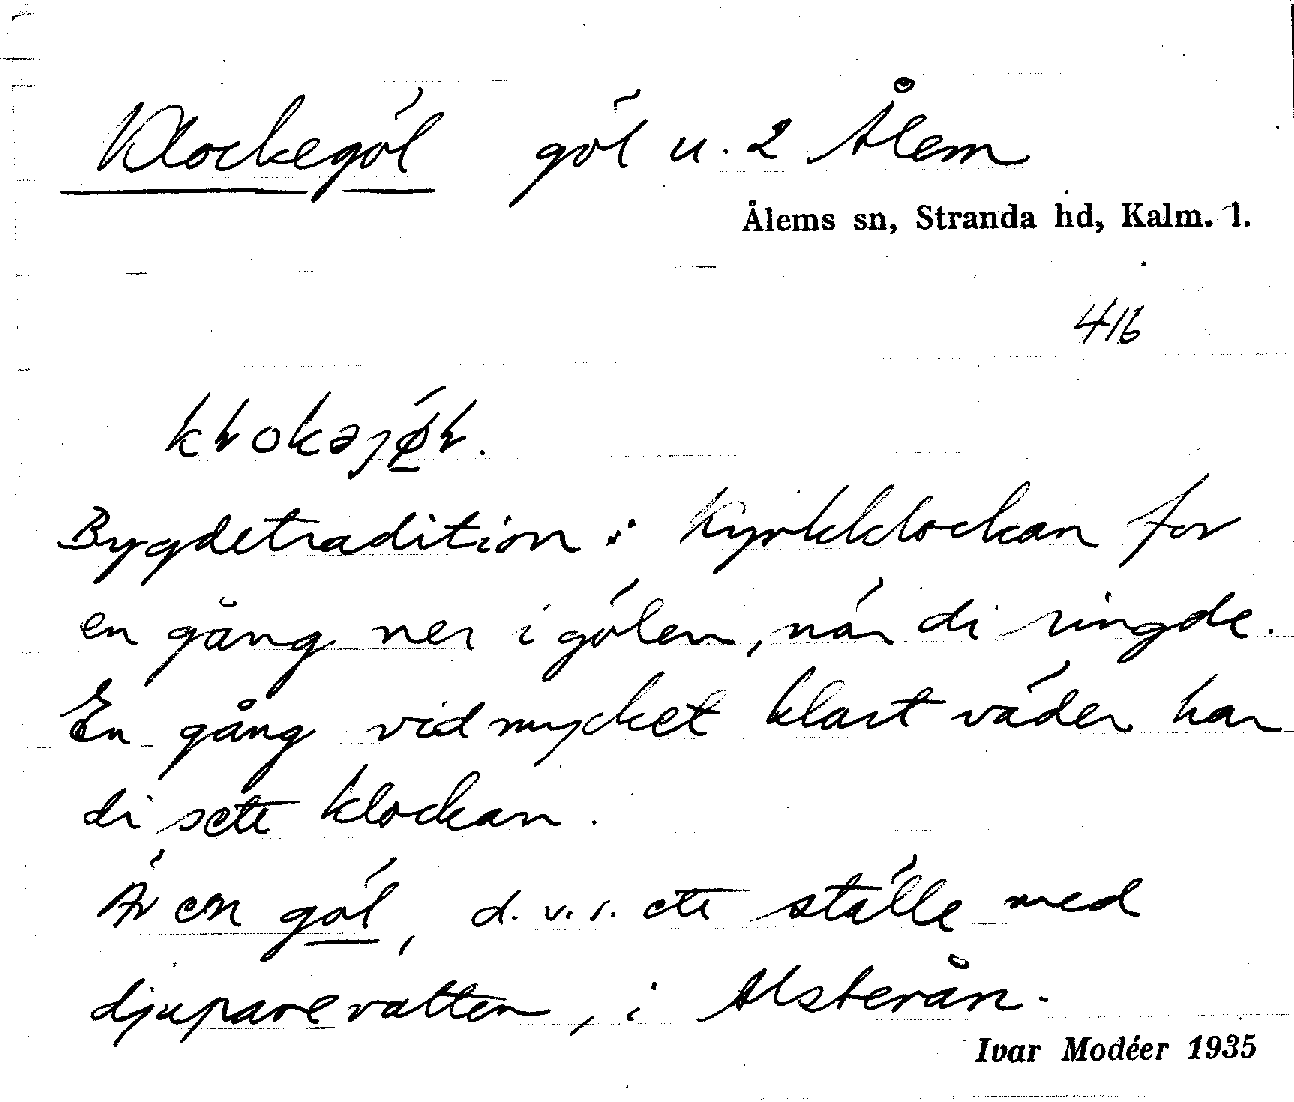 Klockegöl göl u. 2 Ålem
Ålems sn, Stranda hd, Kalm. l.
416
Bygdetradition: Kyrkklockan for
en gång ner i gölen, när di ringde.
En gång vid mycket klart väder har
di sett klockan.
Är en göl, d.v.s. ett ställe med
djupare vatten, i Alsterån.
Ivar Modéer 1935